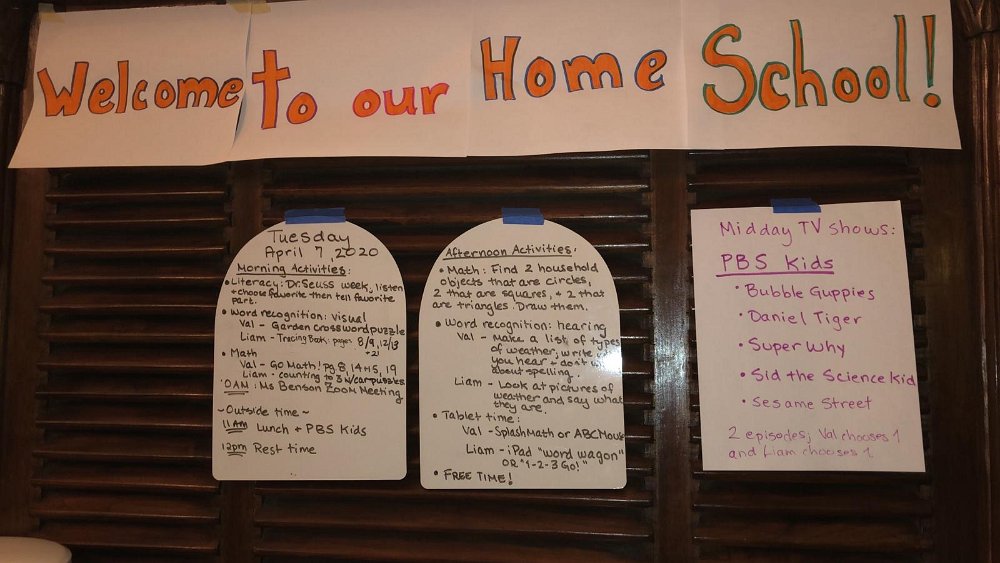 Welcome to our Home School!
Tuesday
April 7, 2020
Morning Activities:
• Literacy: Dr. Seuss week, listen
+ choose favorite then tell favorite
part.
• Word recognition: visual
Val - Garden crosswordpuzzle
Liam - Tracing Book: pages 8/9, 12/13
+21
• Math
Val - GO Math! pg 8, 14+15, 19
Liam - counting to 3 w/car puzzles
10AM: Ms Benson ZOOM Meeting
~Outside time~
11AM Lunch + PBS Kids
12pm Rest time
Afternoon Activities:
• Math: Find 2 household
objects that are circles,
2 that are squares, + 2 that
are triangles. Draw them.
• Word recognition: hearing
Val - Make a list of types
of weather; write
you hear + don't
about spelling.
Liam - Look at pictures of
weather and say what
they are.
• Tablet time:
Val - SplashMath or ABCMouse
Liam - iPad "word wagon"
OR "1-2-3 Go!"
• FREE TIME!
Midday TV shows:
PBS Kids
• Bubble Guppies
• Daniel Tiger
• Super Why
• Sid the Science Kid
• Sesame Street
2 episodes; Val chooses 1
and Liam chooses 1.